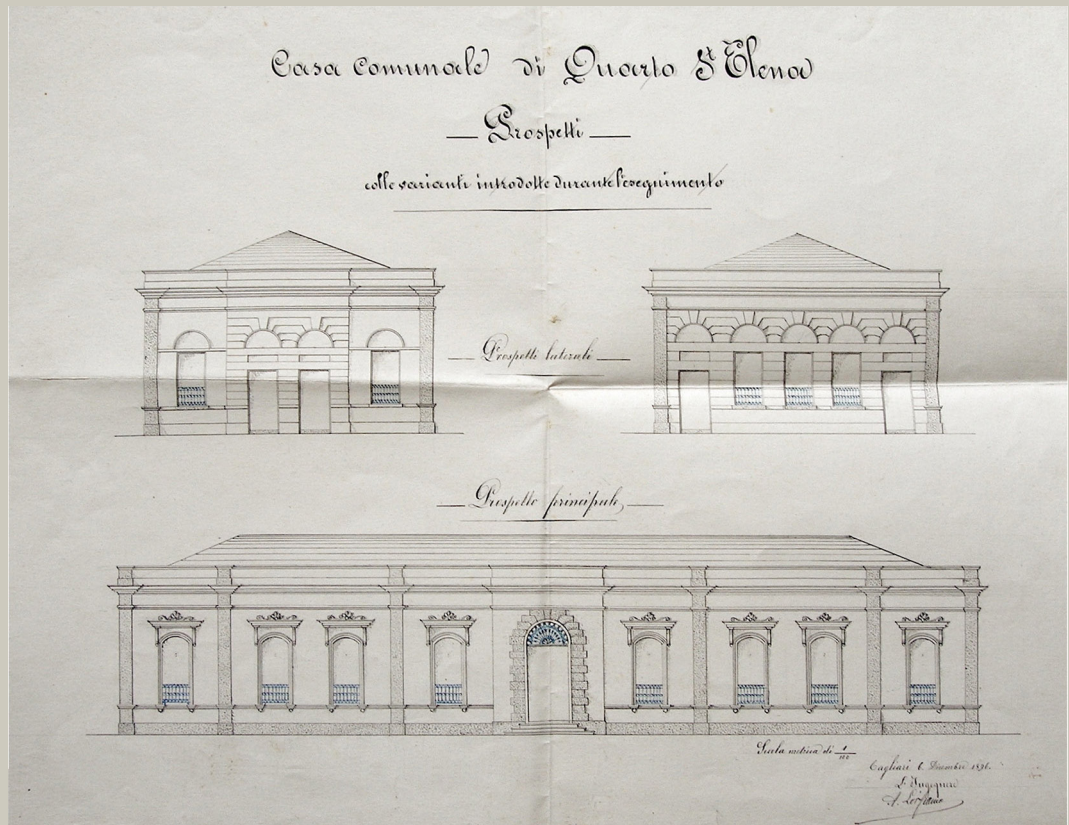 Casa Comunale di Quarto St Elena
Prospetti
colle varianti introdotte durante l'eseguimento
Prospetti laterali
Prospetto principale
Scala metrica di 1/100
Cagliari 6 Dicembre
L'Ingegnere